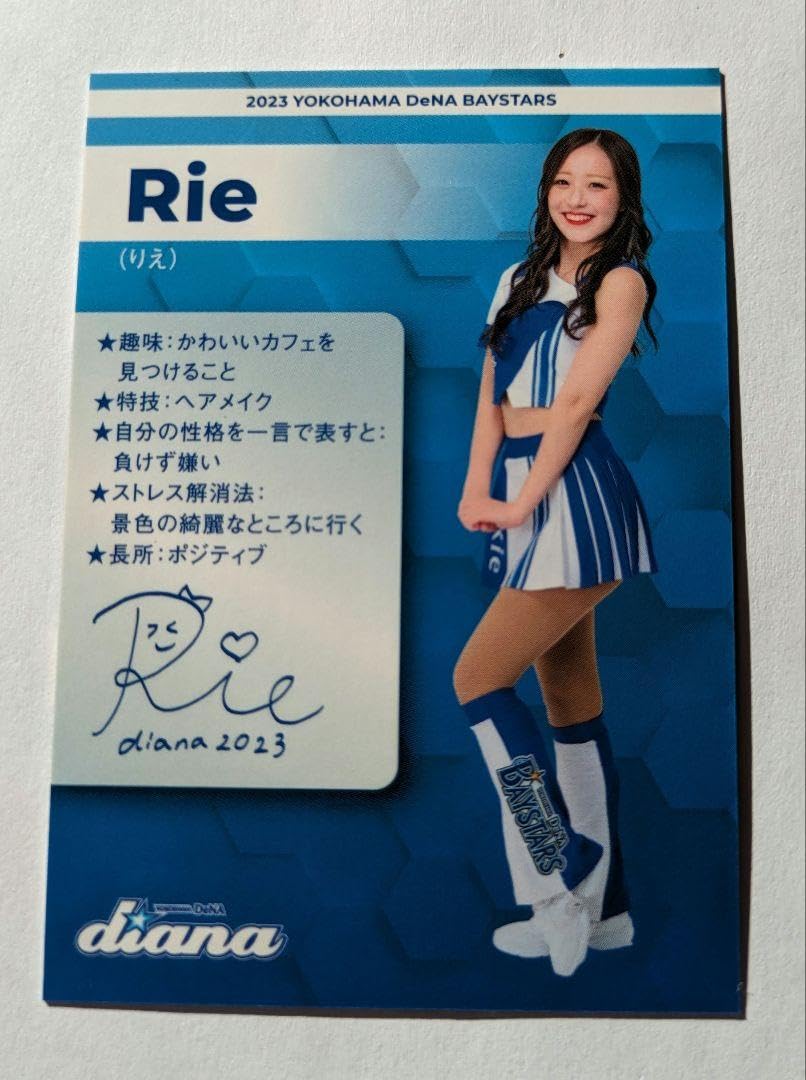 2023 YOKOHAMA DeNA BAYSTARS
Rie
(りえ)
★趣味:かわいいカフェを
見つけること
★特技:ヘアメイク
★自分の性格を一言で表すと:
負けず嫌い
★ストレス解消法:
景色の綺麗なところに行く
★長所:ポジティブ
Rie
diana 2023
Rie
YOKOHAMA DeNA
BAYSTARS
YOKOHAMA DeNA
diana